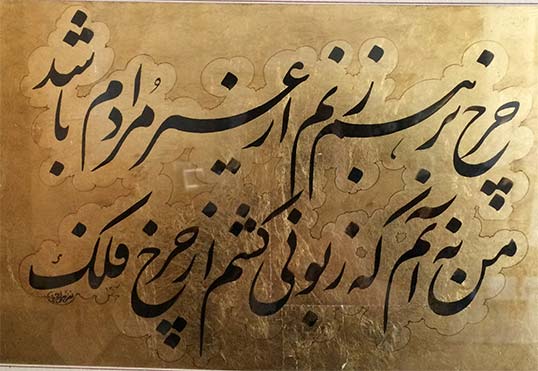 چرخ برهم زنم ار غیر مُرادم باشد
من نه آنم که زبونی کشم از چرخ فلک